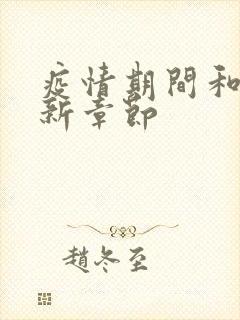 疫情期間和
新章節
趙冬至